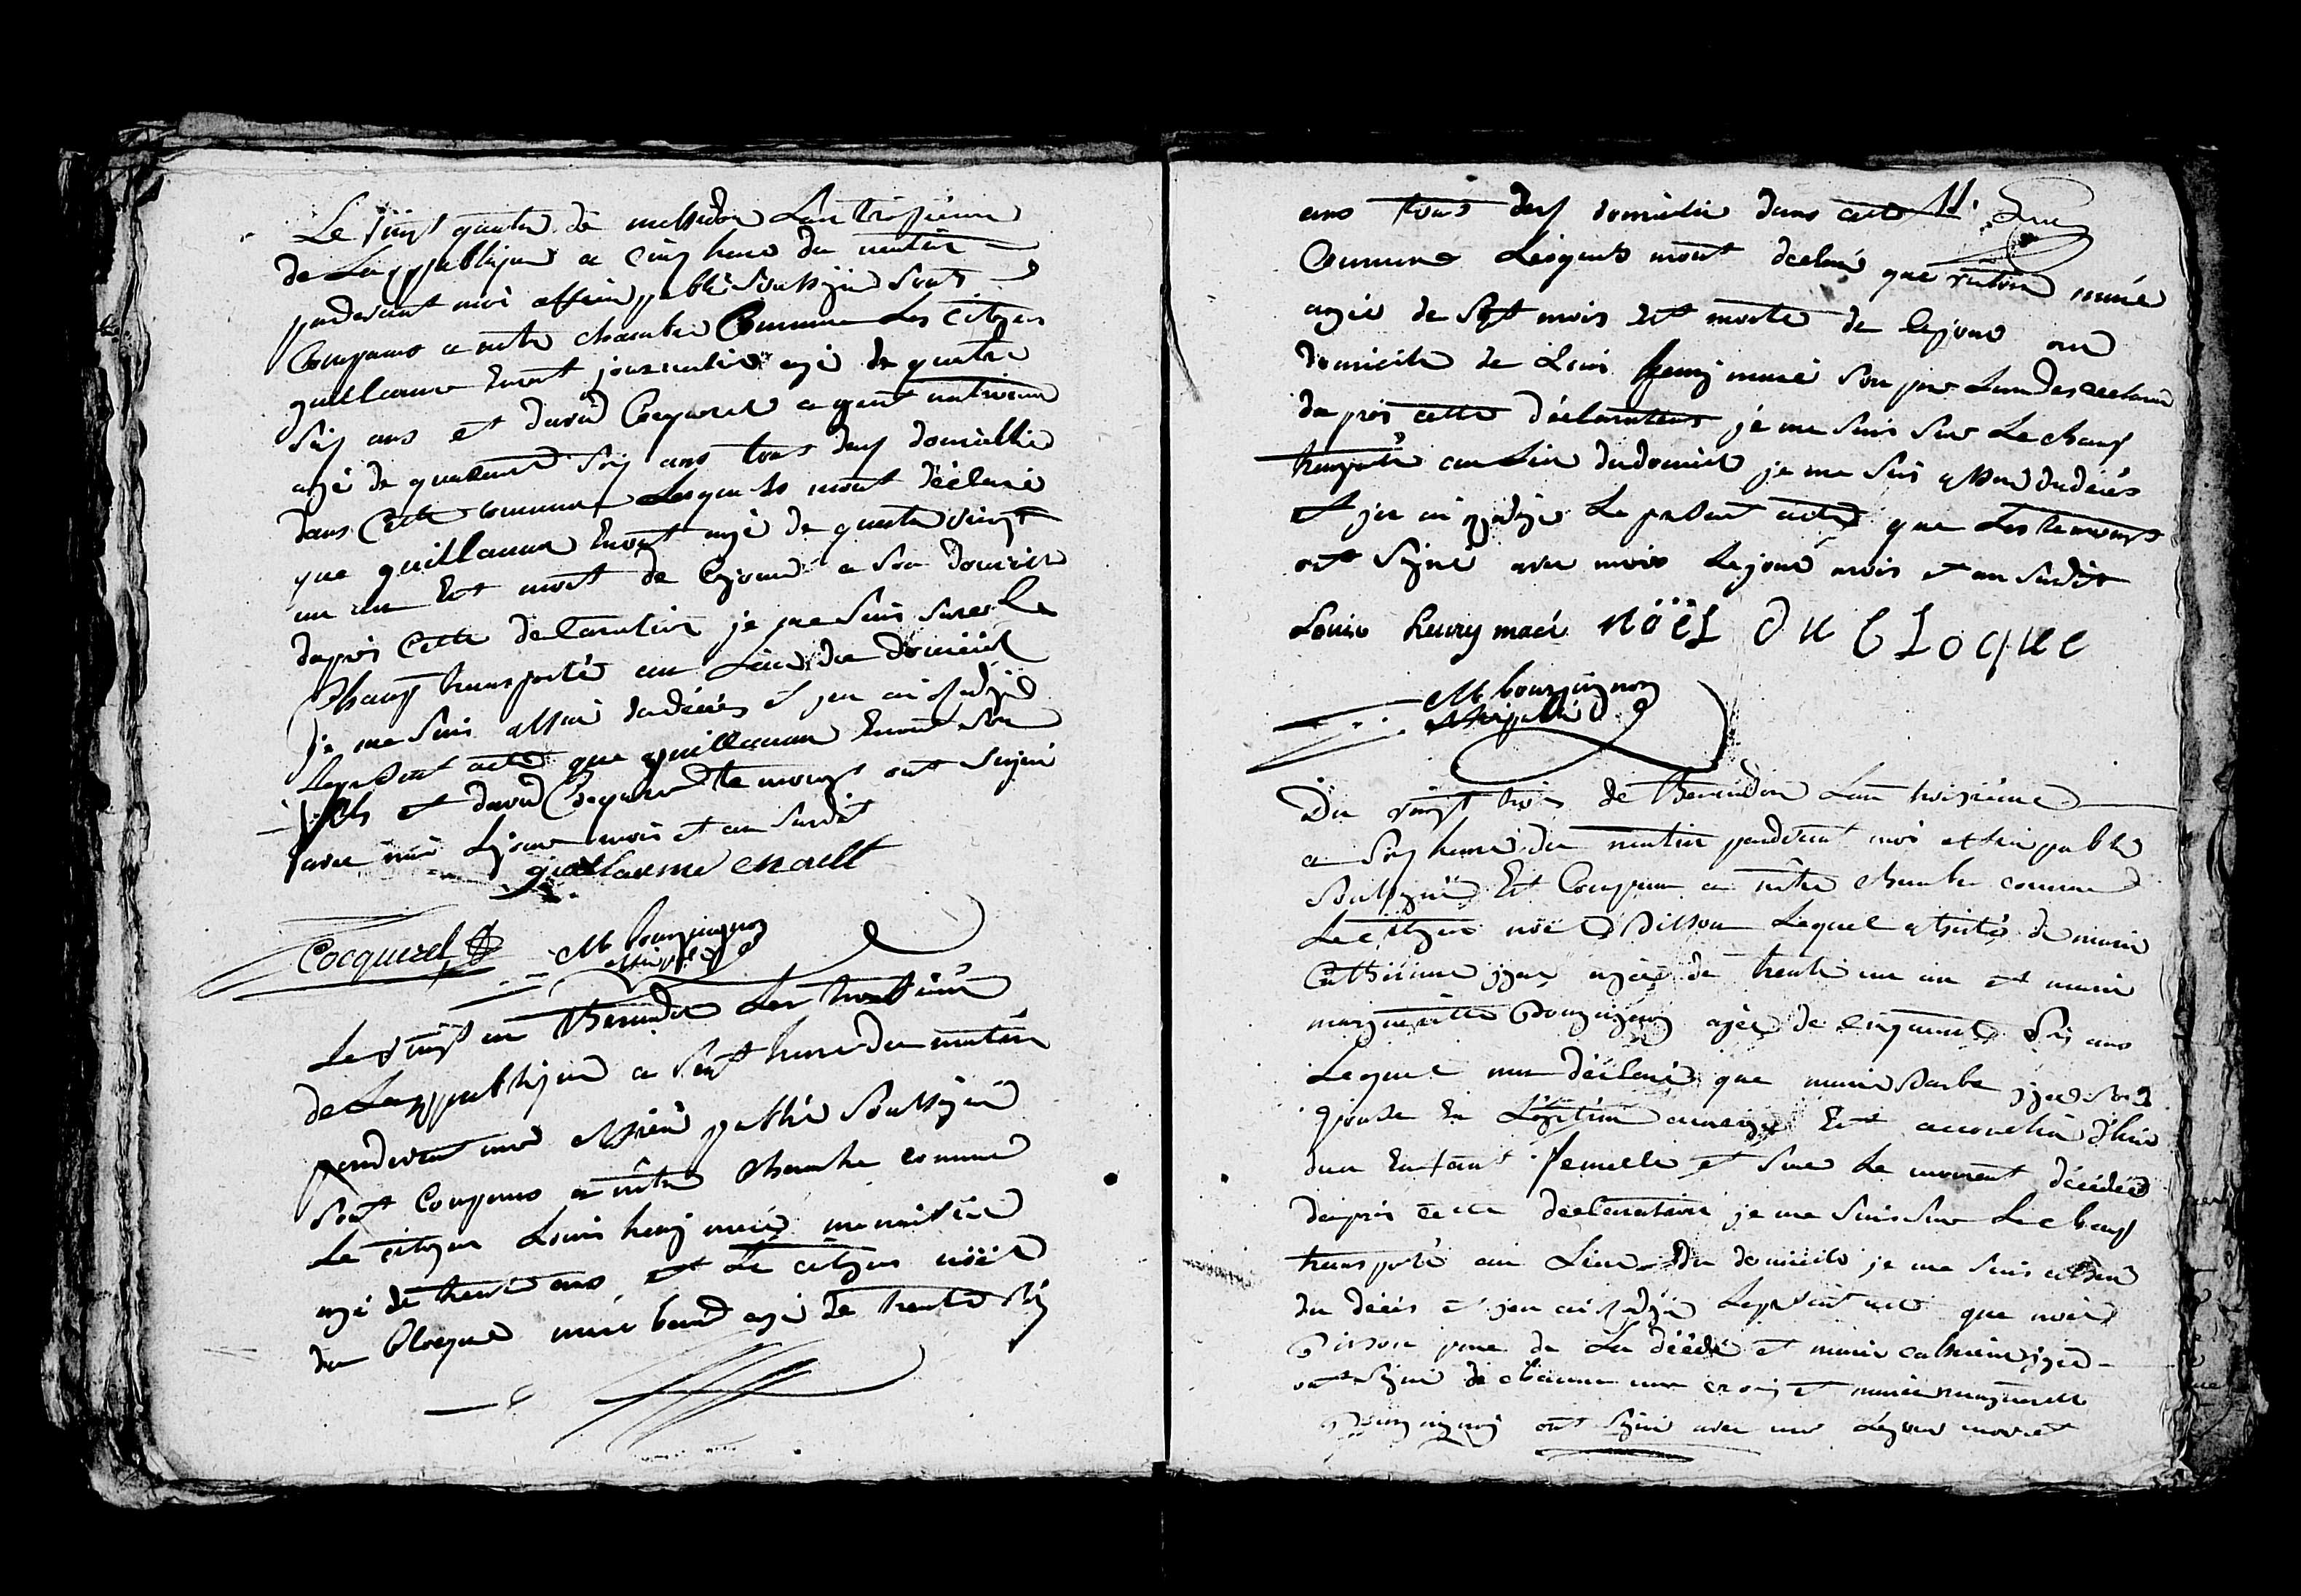 Le vingt quatre de messidor Lan troisieme
de La republique a cinq heure du matin
pardevant moi officier publie soussigné sont
Comparus a notre chambre Commune Les citoyens
guillaume Enout journalier agé de quatre
six ans et david Coquerel agent national
agé de quarante six ans tous deux domicillié
dans Cette commune Lesquels mont déclaré
que guillaume Enout agé de quatre vingt
un an Est mort de cejourd a son domicile
dapres Cette declaration je me suis sur Le
Champ transporté au Lieu du domicile
je me suis assuré du décès et jen ai rédigé
Lepresent acte que guillaume Enout son
fils et david Coquerel temoings ont signé
avec moi Lejour mois et an susdit
guillaume enoult
Cocquerel M bourguignon
officier public
Le vingt un Thermidor Lan troisieme
de La republique a sept heure du matin
pardevant moi officier public soussigné
sont Comparus a notre chambre commune
Le citoyen Louis henry macé
agé de trente ans et Le citoyen noël
du Cloque agé de trente six
ans tous deux domicilié dans cette 11.
Commune Lesquels mont declaré que macé
agée de sept mois Est morte de cejour au
domicile de Louis henry macé son pere Lun des
dapres cette déclaration je me suis sur Le champ
transporté au Lieu du domicile je me suis assuré du décès
et jen ai rédigé Le present acte que Les temoings
ont signé avec moi Lejour mois et an susdit
Louis henry macé NOËL DU CLOQUE
M bourguignon
officier public
Du vingt trois de Thermidor Lan troisieme
a six heure du matin pardevant moi officier public
soussigné Est Comparu a notre chambre commune
Le citoyen noël Lequel assisté de marie
Catherine agée de trente un an et marie
marguerite Bourguignon agée de cinquante six ans
Lequel ma déclaré que marie barbe son
Epouse En Légitime mariage Est accouchée d'hier
dun Enfant femelle et sur Le moment décédée
dapres cette declaration je me suis sur Le champ
transporté au Lieu du domicile je me suis assuré
du décès et jen ai rédigé Lepresent acte que noël
pere de La décédé et marie catherine
ont signé de chacun une croix et marie marguerite
Bourguignon ont signé avec moi Lejour mois et